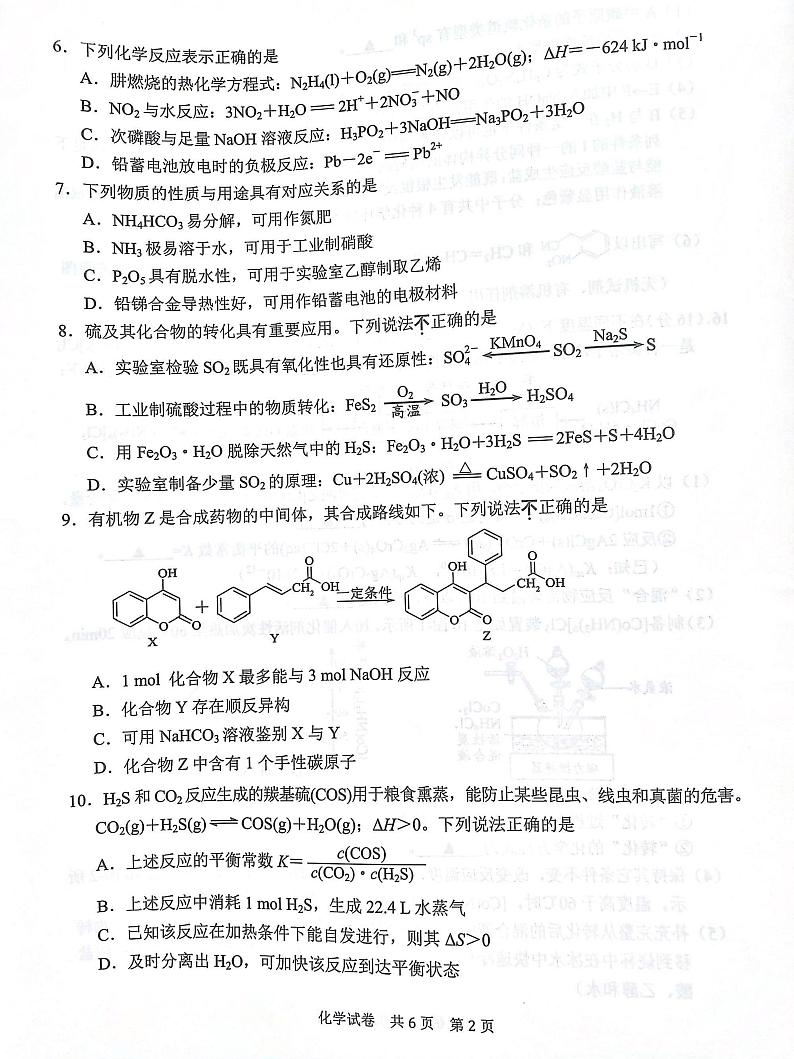 6．下列化学反应表示正确的是
A．肼燃烧的热化学方程式：N₂H₄(l)＋O₂(g)══N₂(g)＋2H₂O(g)；ΔH＝－624 kJ·mol⁻¹
B．NO₂与水反应：3NO₂＋H₂O══2H⁺＋2NO₃⁻＋NO
C．次磷酸与足量 NaOH 溶液反应：H₃PO₂＋3NaOH══Na₃PO₂＋3H₂O
D．铅蓄电池放电时的负极反应：Pb－2e⁻══Pb²⁺
7．下列物质的性质与用途具有对应关系的是
A．NH₄HCO₃易分解，可用作氮肥
B．NH₃极易溶于水，可用于工业制硝酸
C．P₂O₅具有脱水性，可用于实验室乙醇制取乙烯
D．铅锑合金导热性好，可用作铅蓄电池的电极材料
8．硫及其化合物的转化具有重要应用。下列说法不正确的是
A．实验室检验 SO₂既具有氧化性也具有还原性：SO₄²⁻ ←KMnO₄ SO₂ Na₂S→ S
B．工业制硫酸过程中的物质转化：FeS₂ O₂ 高温→ SO₃ H₂O→ H₂SO₄
C．用 Fe₂O₃·H₂O 脱除天然气中的 H₂S：Fe₂O₃·H₂O＋3H₂S══2FeS＋S＋4H₂O
D．实验室制备少量 SO₂的原理：Cu＋2H₂SO₄(浓) △══ CuSO₄＋SO₂↑＋2H₂O
9．有机物 Z 是合成药物的中间体，其合成路线如下。下列说法不正确的是
OH O O X ＋ O CH₂ OH Y 一定条件→ OH O O O CH₂ OH Z
A．1 mol 化合物 X 最多能与 3 mol NaOH 反应
B．化合物 Y 存在顺反异构
C．可用 NaHCO₃溶液鉴别 X 与 Y
D．化合物 Z 中含有 1 个手性碳原子
10．H₂S 和 CO₂反应生成的羰基硫(COS)用于粮食熏蒸，能防止某些昆虫、线虫和真菌的危害。
CO₂(g)＋H₂S(g)⇌COS(g)＋H₂O(g)；ΔH＞0。下列说法正确的是
A．上述反应的平衡常数 K＝c(COS)/c(CO₂)·c(H₂S)
B．上述反应中消耗 1 mol H₂S，生成 22.4 L 水蒸气
C．已知该反应在加热条件下能自发进行，则其 ΔS＞0
D．及时分离出 H₂O，可加快该反应到达平衡状态
化学试卷 共 6 页 第 2 页